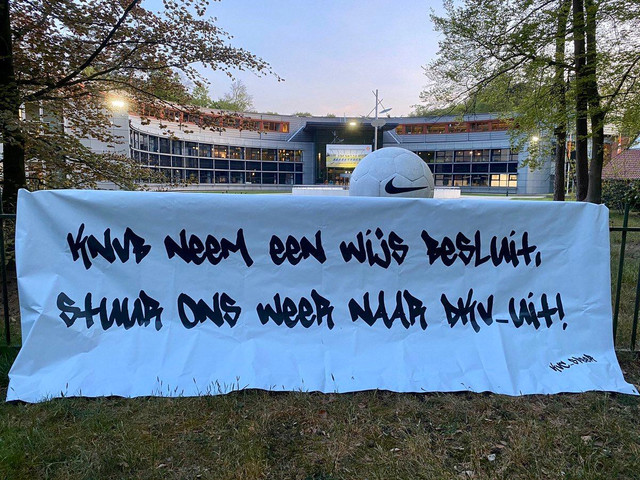 KNVB NEEM EEN WIJS BESLUIT,
STUUR ONS WEER NAAR DKV_UIT!